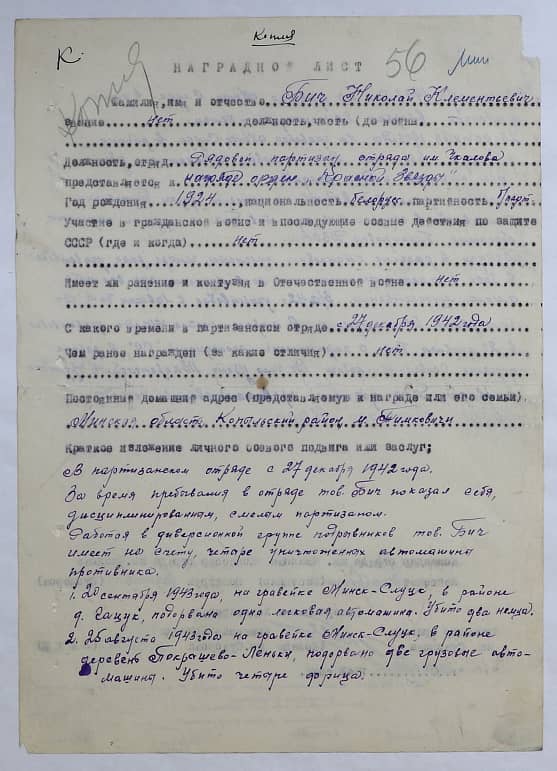 Копия
К
Копия
56
НАГРАДНОЙ ЛИСТ
Фамилия, имя и отчество Бич Николай Клементьевич
звание нет должность, часть (до войны
Должность, отряд. Рядовой партизан отряда им. Чкалова
представляется к награде орден „Красной Звезды"
Год рождения 1924 национальность белорус партийность
Участие в гражданской войне и в последующие боевые действия по защите
СССР (где и когда) нет
Имеет ли ранение и контузия в Отечественной войне нет
С какого времени в партизанском отряде с 27 декабря 1942 года
Чем ранее награжден (за какие отличия) нет
Постоянный домашний адрес (представляемую к награде или его семьи)
Минской области Копыльский район м. Тимковичи
Краткое изложение личного боевого подвига или заслуг;
В партизанском отряде с 27 декабря 1942 года.
За время пребывания в отряде тов. Бич показал себя,
дисциплинированным, смелым партизаном.
Работая в диверсионной группе подрывников тов. Бич
имеет на счету, четыре уничтоженных автомашина
противника.
1. 20 сентября 1943 года, на гравейке Минск-Слуцк, в районе
д. Гацук, подорвано одна легковая автомашина. Убито два немца.
2. 25 августа 1943 года на гравейке Минск-Слуцк, в районе
деревень Покрашево-Леньки, подорвано две грузовые авто-
машина. Убито четыре фрица.